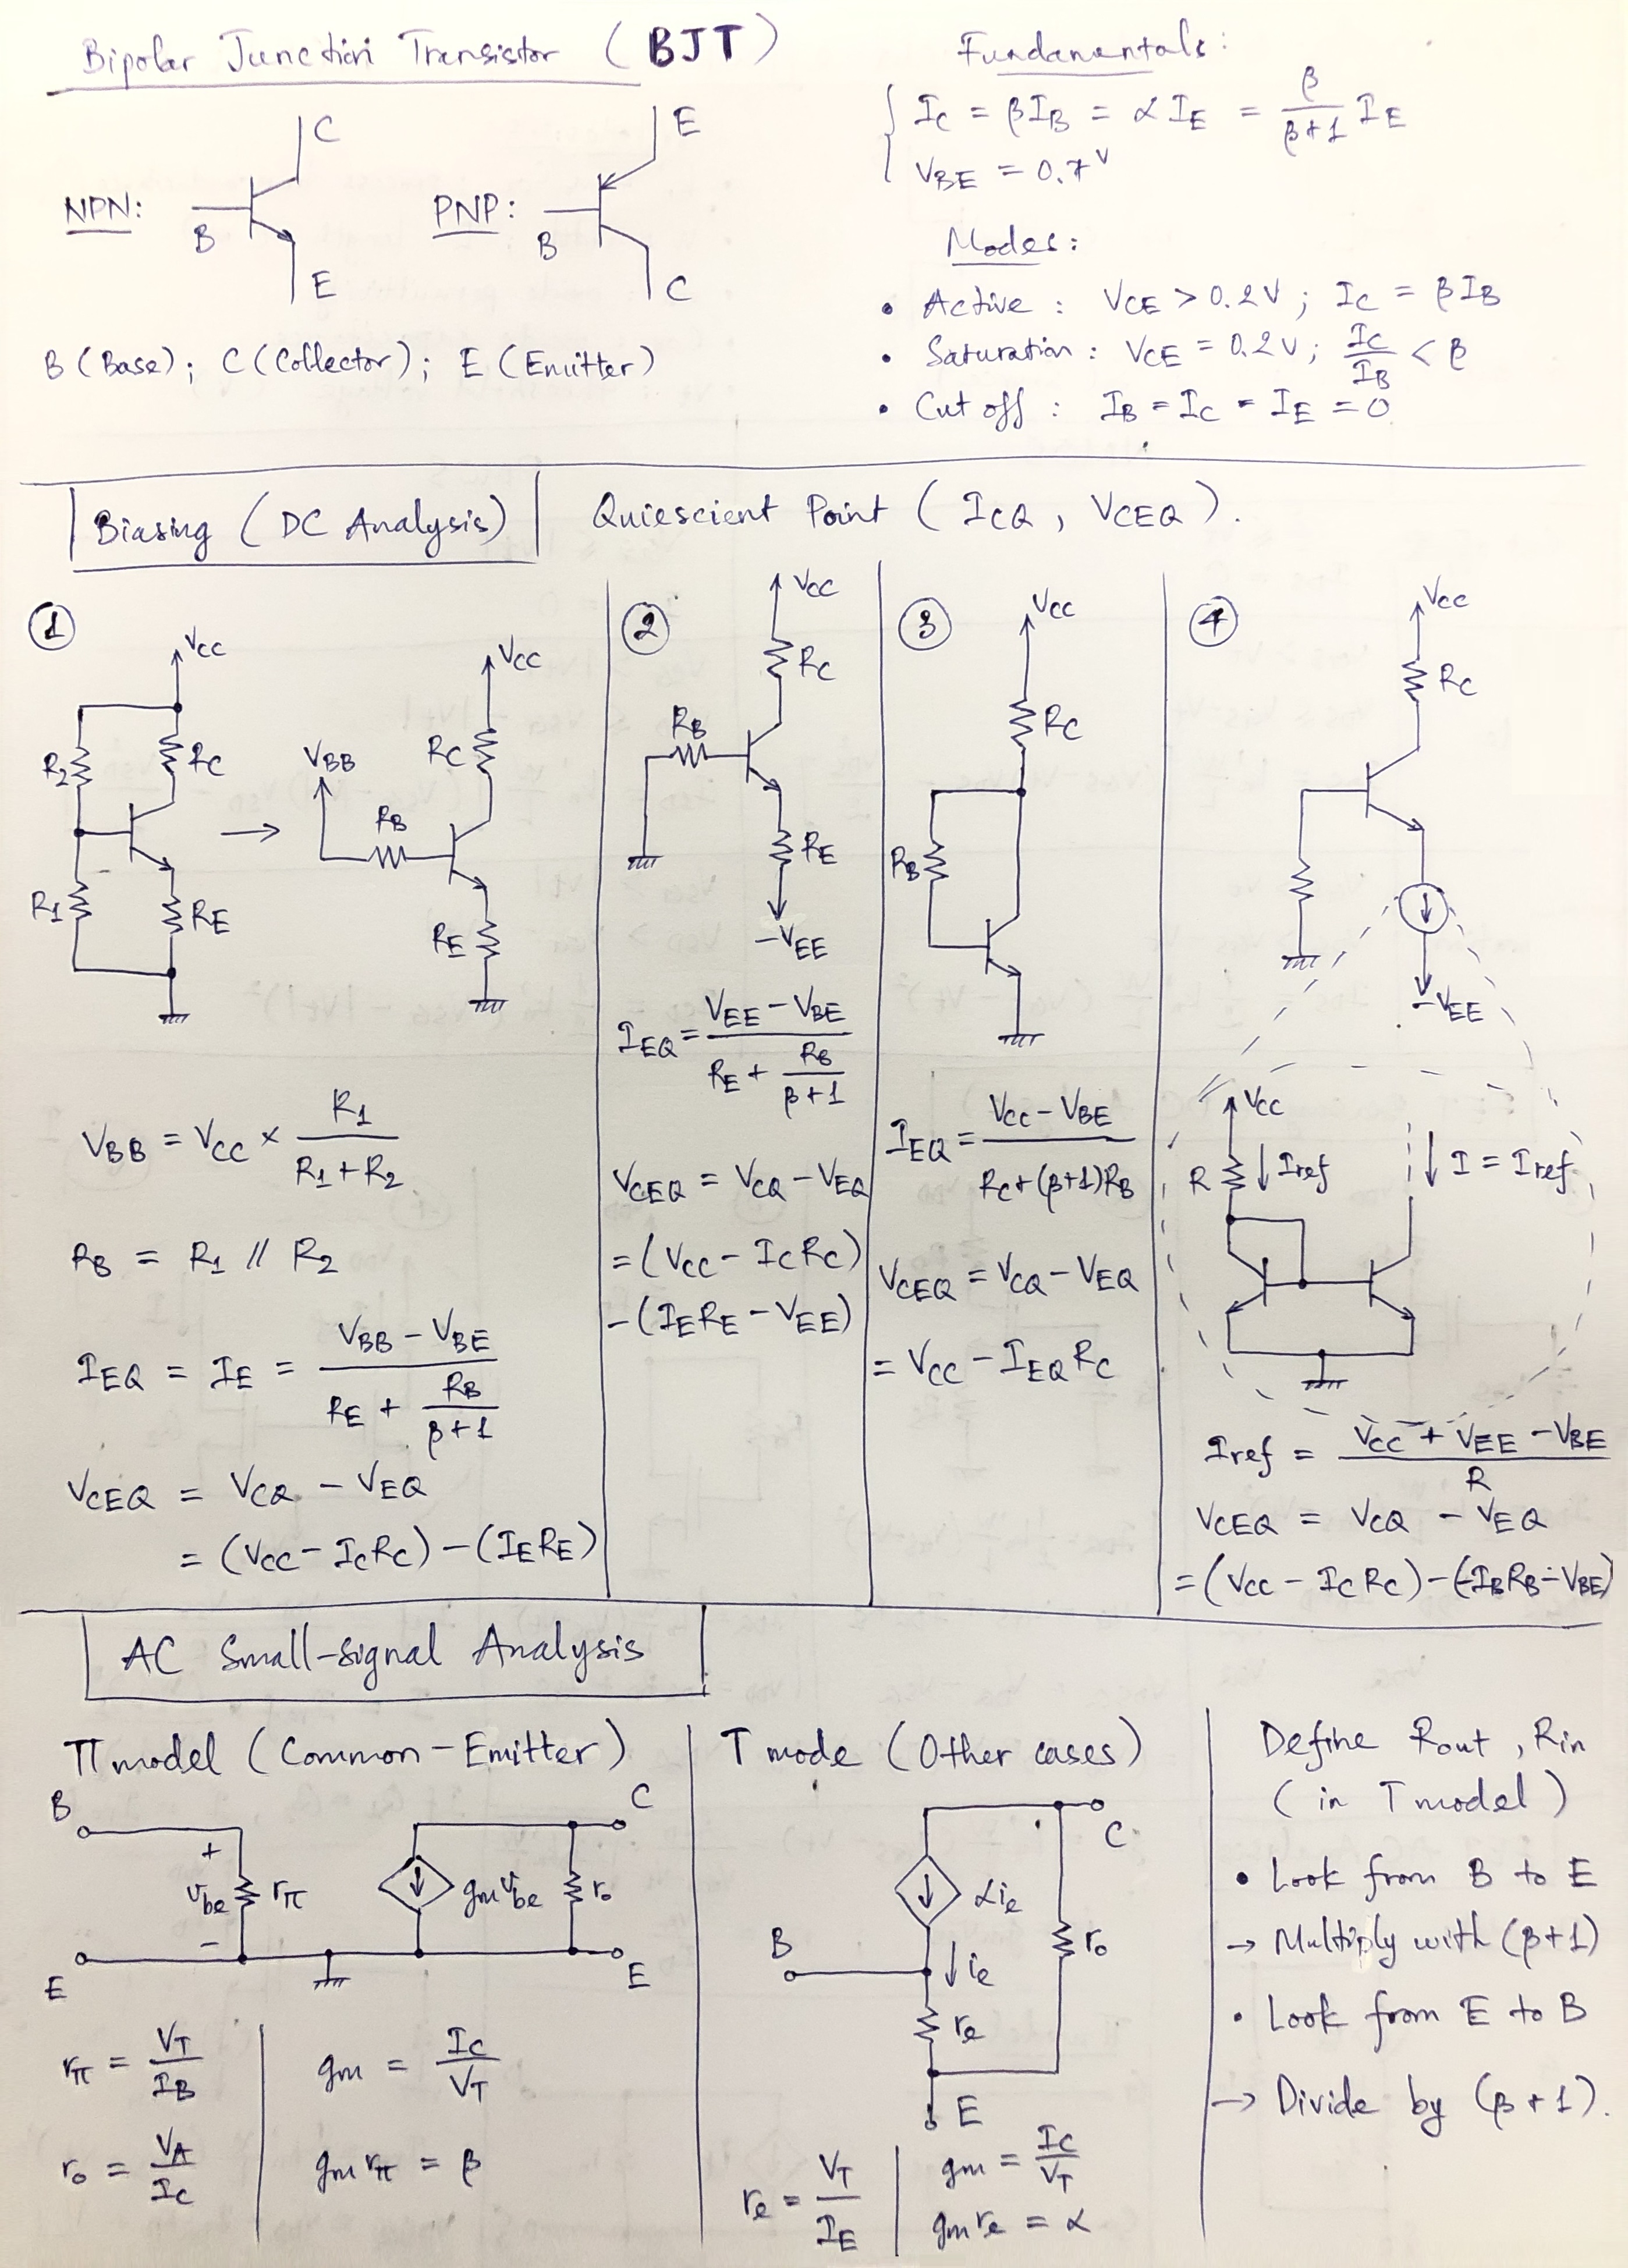 Bipolar Junction Transistor (BJT)
NPN:
C
B
E
PNP:
E
B
C
B (Base); C (Collector); E (Emitter)
Fundamentals:
I_C = βI_B = αI_E = β/(β+1) I_E
V_BE = 0.7V
Modes:
• Active : V_CE > 0.2V ; I_C = βI_B
• Saturation : V_CE = 0.2V ; I_C/I_B < β
• Cut off : I_B = I_C = I_E = 0
Biasing (DC Analysis)
Quiescient Point (I_CQ , V_CEQ).
①
V_CC
R_2
R_C
R_1
R_E
→
V_CC
V_BB
R_C
R_B
R_E
V_BB = V_CC × R_1/(R_1+R_2)
R_B = R_1 // R_2
I_EQ = I_E = (V_BB - V_BE)/(R_E + R_B/(β+1))
V_CEQ = V_CQ - V_EQ
= (V_CC - I_C R_C) - (I_E R_E)
②
V_CC
R_C
R_B
R_E
-V_EE
I_EQ = (V_EE - V_BE)/(R_E + R_B/(β+1))
V_CEQ = V_CQ - V_EQ
= (V_CC - I_C R_C)
- (I_E R_E - V_EE)
③
V_CC
R_C
R_B
I_EQ = (V_CC - V_BE)/(R_C + (β+1)R_B)
V_CEQ = V_CQ - V_EQ
= V_CC - I_EQ R_C
④
V_CC
R_C
-V_EE
V_CC
R
↓ I_ref
↓ I = I_ref
I_ref = (V_CC + V_EE - V_BE)/R
V_CEQ = V_CQ - V_EQ
= (V_CC - I_C R_C) - (-I_B R_B - V_BE)
AC Small-signal Analysis
Π model (Common-Emitter)
B
C
+
v_be
r_π
g_m v_be
r_o
-
E
E
r_π = V_T/I_B
g_m = I_C/V_T
r_o = V_A/I_C
g_m r_π = β
T mode (Other cases)
C
αi_e
B
↓ i_e
r_o
r_e
E
r_e = V_T/I_E
g_m = I_C/V_T
g_m r_e = α
Define R_out , R_in
(in T model)
• Look from B to E
→ Multiply with (β+1)
• Look from E to B
→ Divide by (β+1).